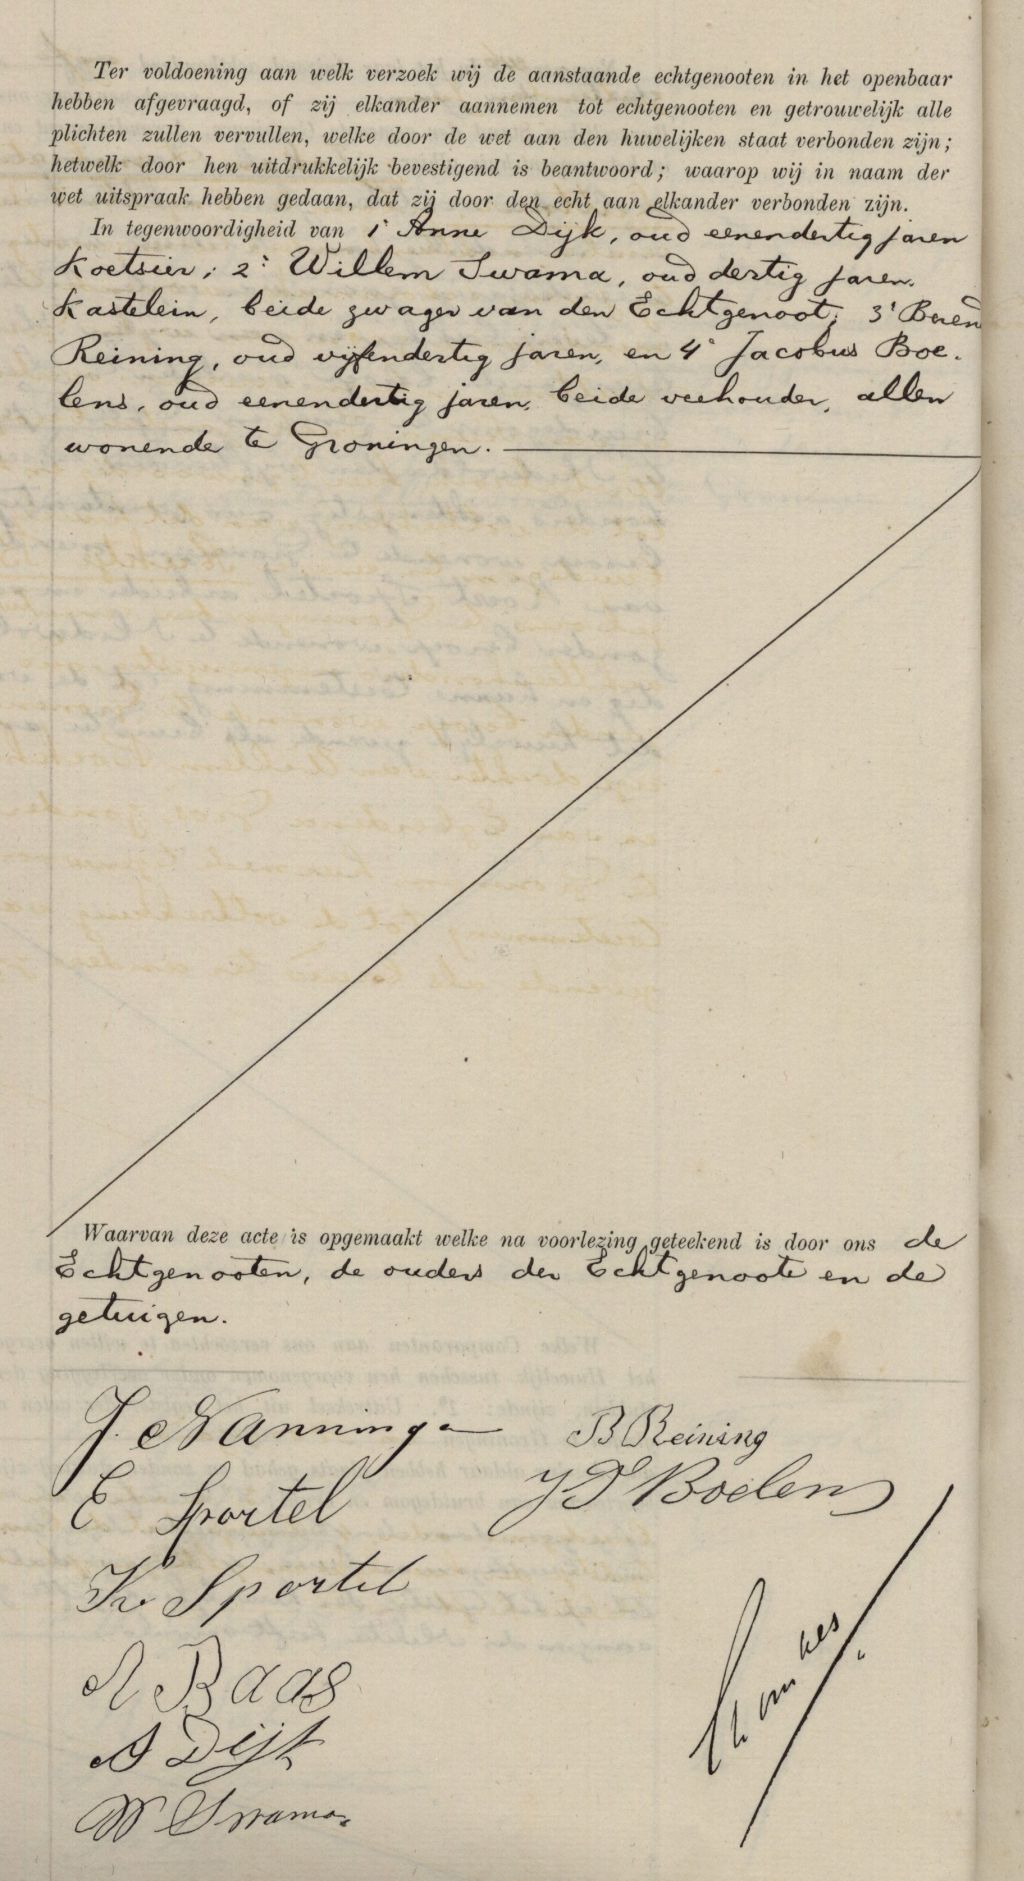 Ter voldoening aan welk verzoek wij de aanstaande echtgenooten in het openbaar
hebben afgevraagd, of zij elkander aannemen tot echtgenooten en getrouwelijk alle
plichten zullen vervullen, welke door de wet aan den huwelijken staat verbonden zijn;
hetwelk door hen uitdrukkelijk bevestigend is beantwoord; waarop wij in naam der
wet uitspraak hebben gedaan, dat zij door den echt aan elkander verbonden zijn.
In tegenwoordigheid van 1° Anne Dijk, oud eenendertig jaren
Koetsier; 2° Willem Swama, oud dertig jaren,
Kastelein, beide zwager van den Echtgenoot; 3° Berend
Reining, oud vijfendertig jaren, en 4° Jacobus Boe-
lens, oud eenendertig jaren, beide veehouder, allen
wonende te Groningen.
Waarvan deze acte is opgemaakt welke na voorlezing geteekend is door ons de
Echtgenooten, de ouders der Echtgenoote en de
getuigen.
J. Nanninga
B Reining
E Sportel
J D Boelens
K Sportel
A Baas
A Dijk
W Swama